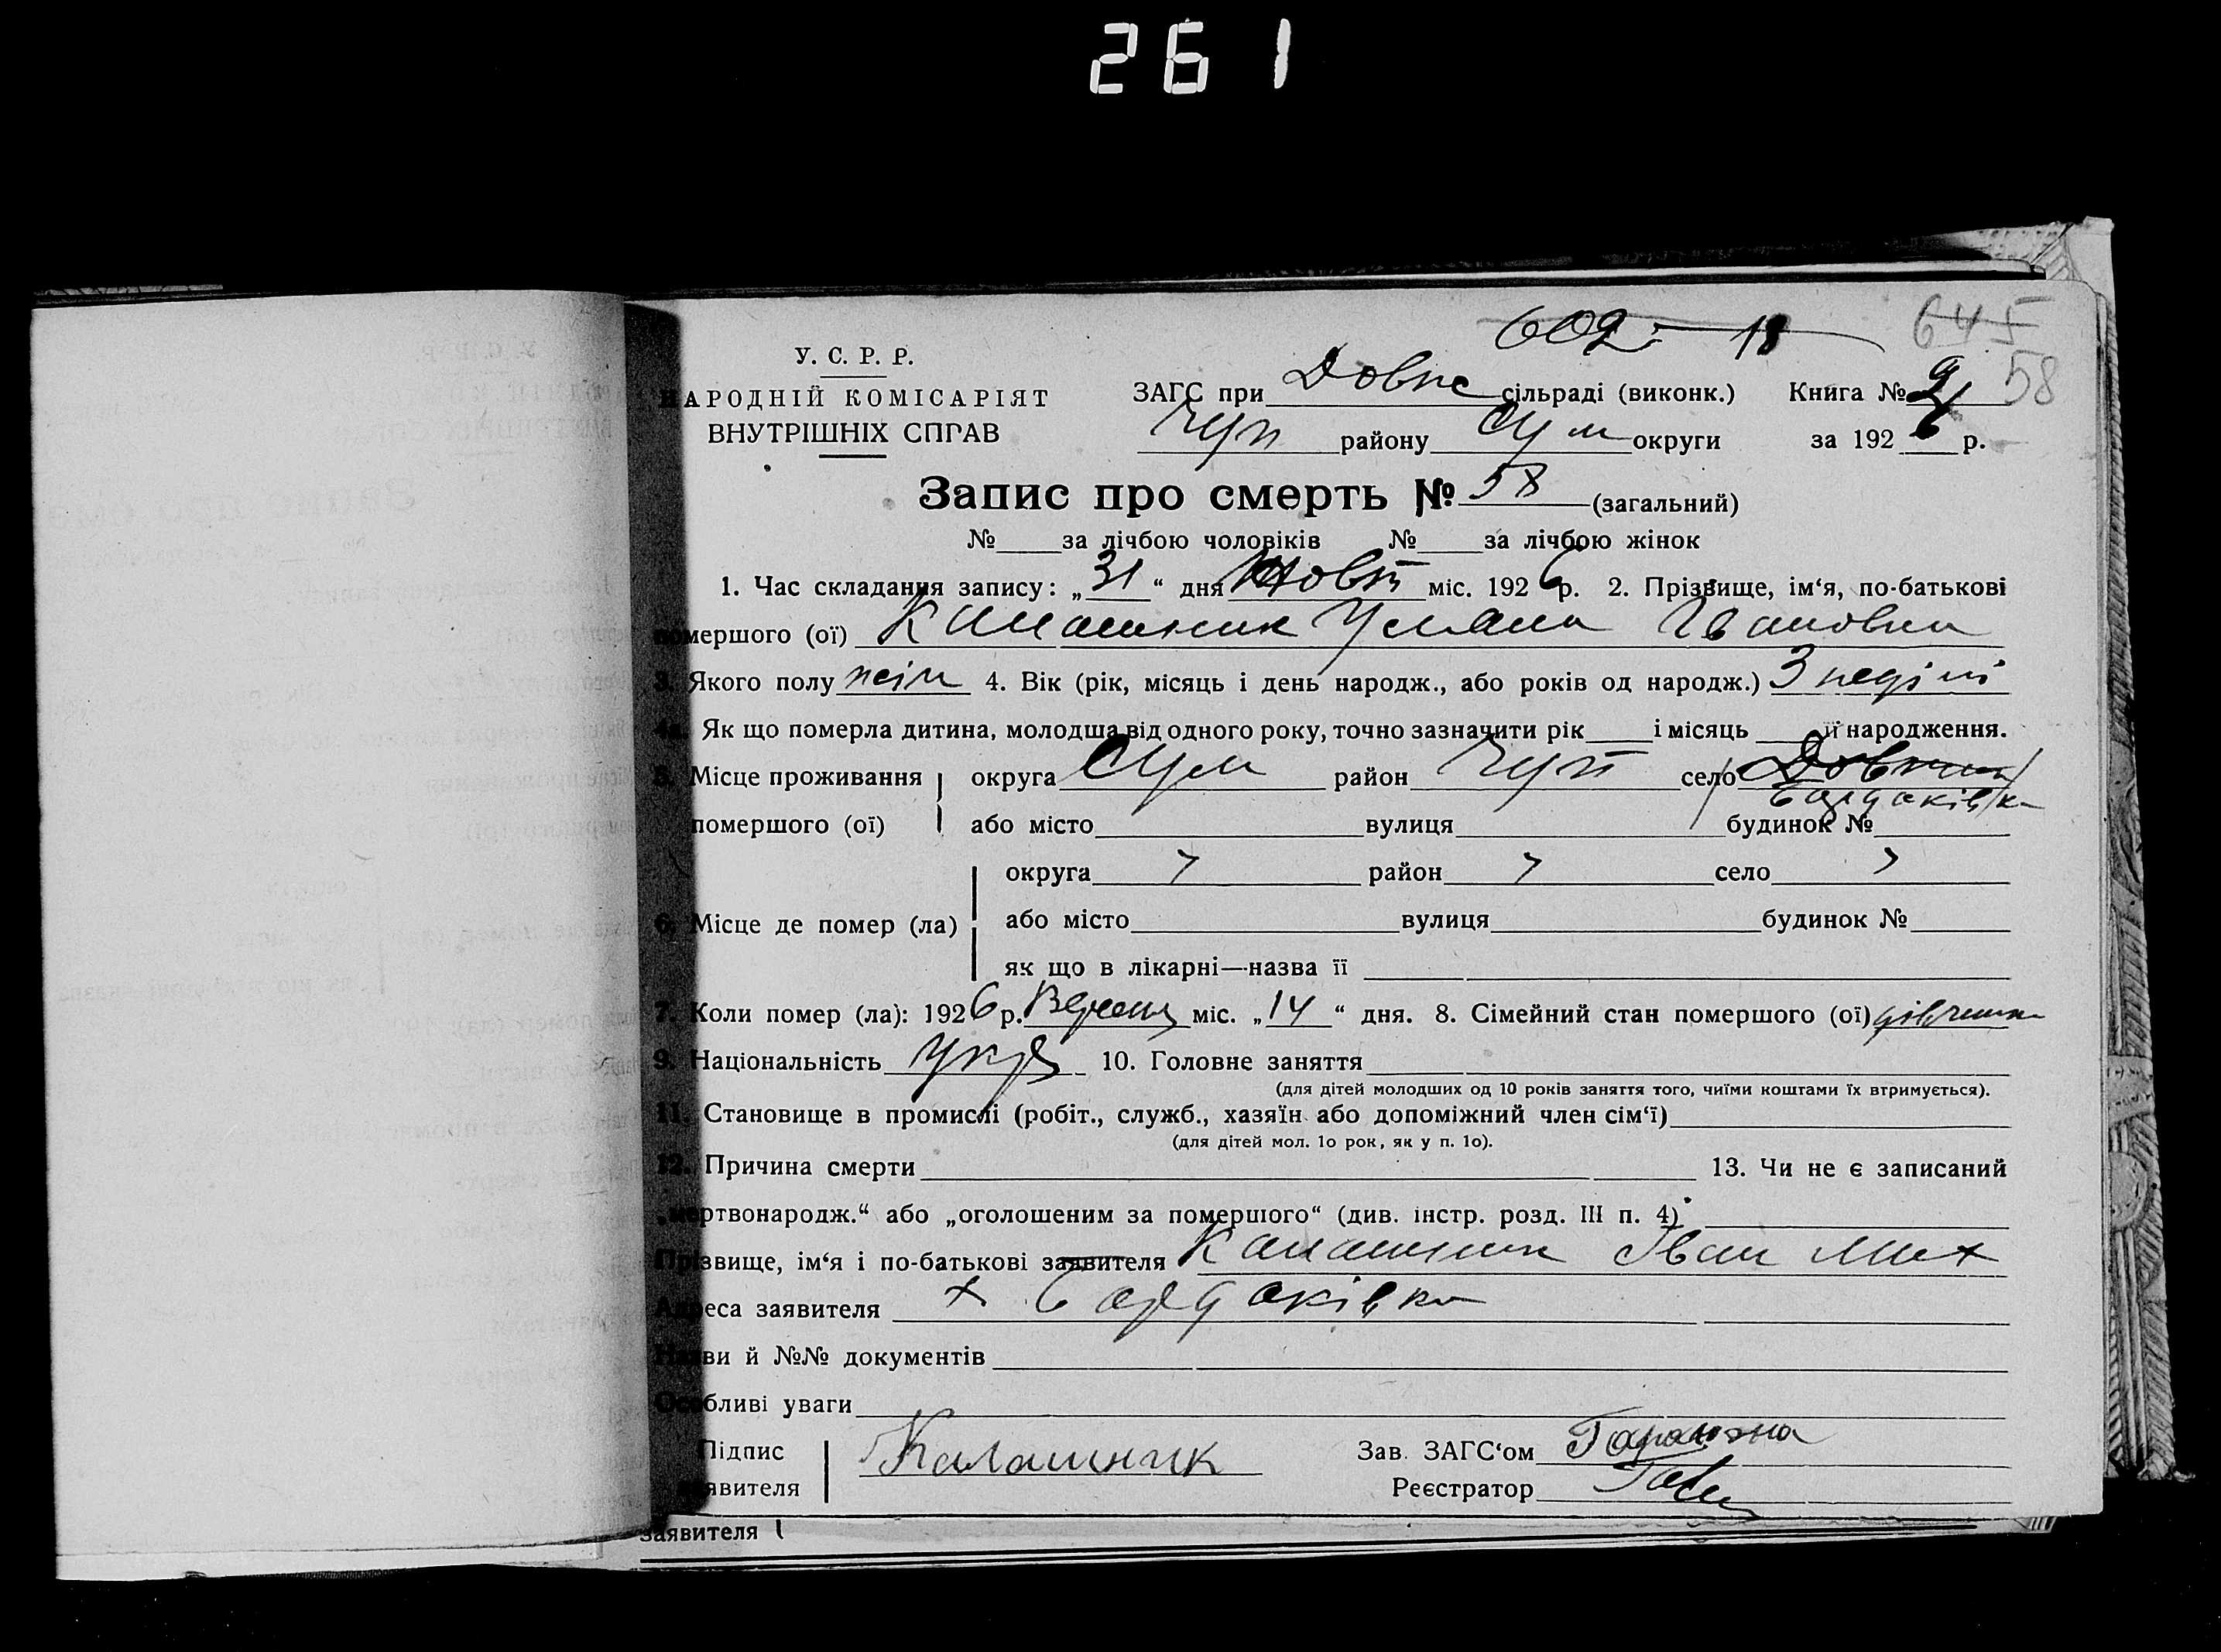 261
602 — 18
645
58
У. С. Р. Р.
НАРОДНІЙ КОМІСАРІЯТ
ВНУТРІШНІХ СПРАВ
ЗАГС при Довж сільраді (виконк.) Книга №
Чуп району Сум округи за 1926 р.
Запис про смерть № 58 (загальний)
№ за лічбою чоловіків № за лічбою жінок
1. Час складання запису: „31“ дня Жовт міс. 1926 р. 2. Прізвище, ім‘я, по-батькові
помершого (ої) Калашник Уляна Івановна
3. Якого полу жін 4. Вік (рік, місяць і день народж., або років од народж.) 3 неділі
4а. Як що померла дитина, молодша від одного року, точно зазначити рік і місяць її народження.
5. Місце проживання округа Сум район Чуп село
Бардаківка
помершого (ої) або місто вулиця будинок №
округа район село
6. Місце де помер (ла) або місто вулиця будинок №
як що в лікарні—назва її
7. Коли помер (ла): 1926 р. Вересня міс. „14“ дня. 8. Сімейний стан помершого (ої) дівчина
9. Національність укр 10. Головне заняття
(для дітей молодших од 10 років заняття того, чиїми коштами їх втримується).
11. Становище в промислі (робіт., служб., хазяїн або допоміжний член сім‘ї)
(для дітей мол. 1о рок, як у п. 1о).
12. Причина смерти 13. Чи не є записаний
„мертвонародж.“ або „оголошеним за помершого“ (див. інстр. розд. III п. 4)
Прізвище, ім‘я і по-батькові заявителя Калашник Іван Мих
Адреса заявителя х Бардаківка
Назви й №№ документів
Особливі уваги
Підпис Калашник Зав. ЗАГС‘ом
заявителя Реєстратор
заявителя